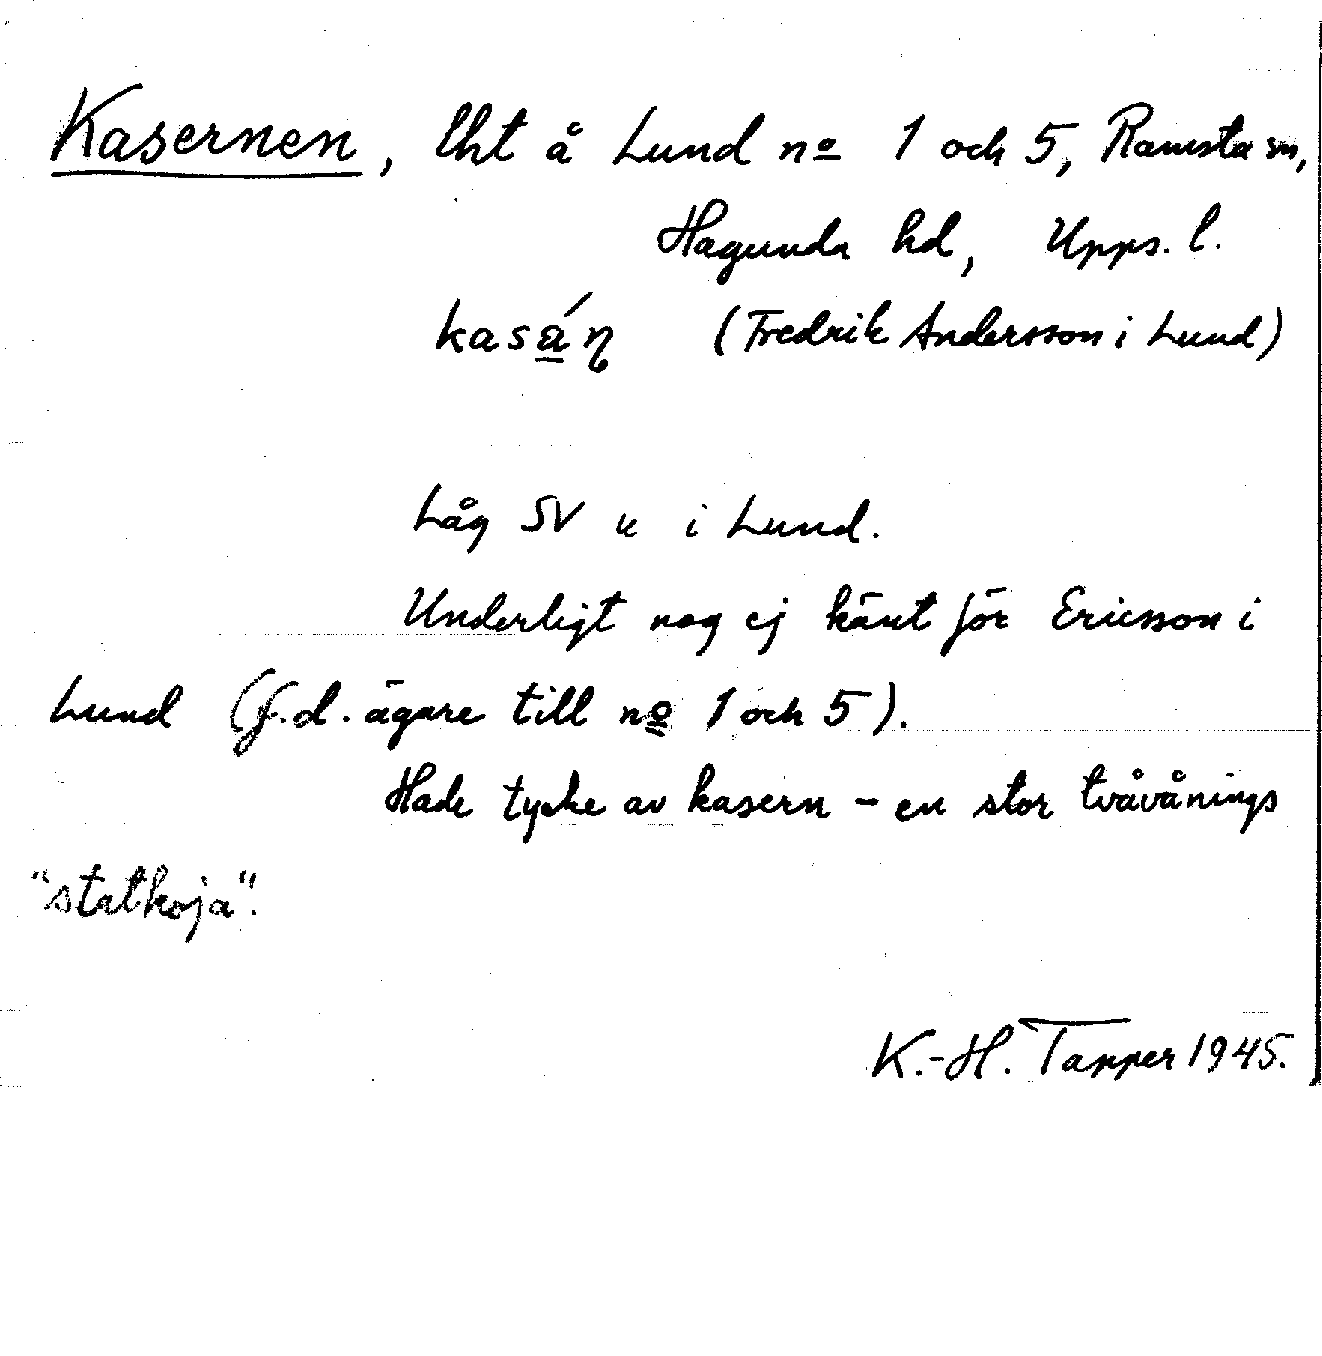 Kasernen, lht å Lund nº 1 och 5, Ramsta sn,
Hagunda hd, Upps. l.
(Fredrik Andersson i Lund)
Låg SV u i Lund.
Underligt nog ej känt för Ericsson i
Lund (f.d. ägare till nº 1 och 5).
Hade tycke av kasern - en stor tvåvånings
"statkoja".
K.-H. Tapper 1945.